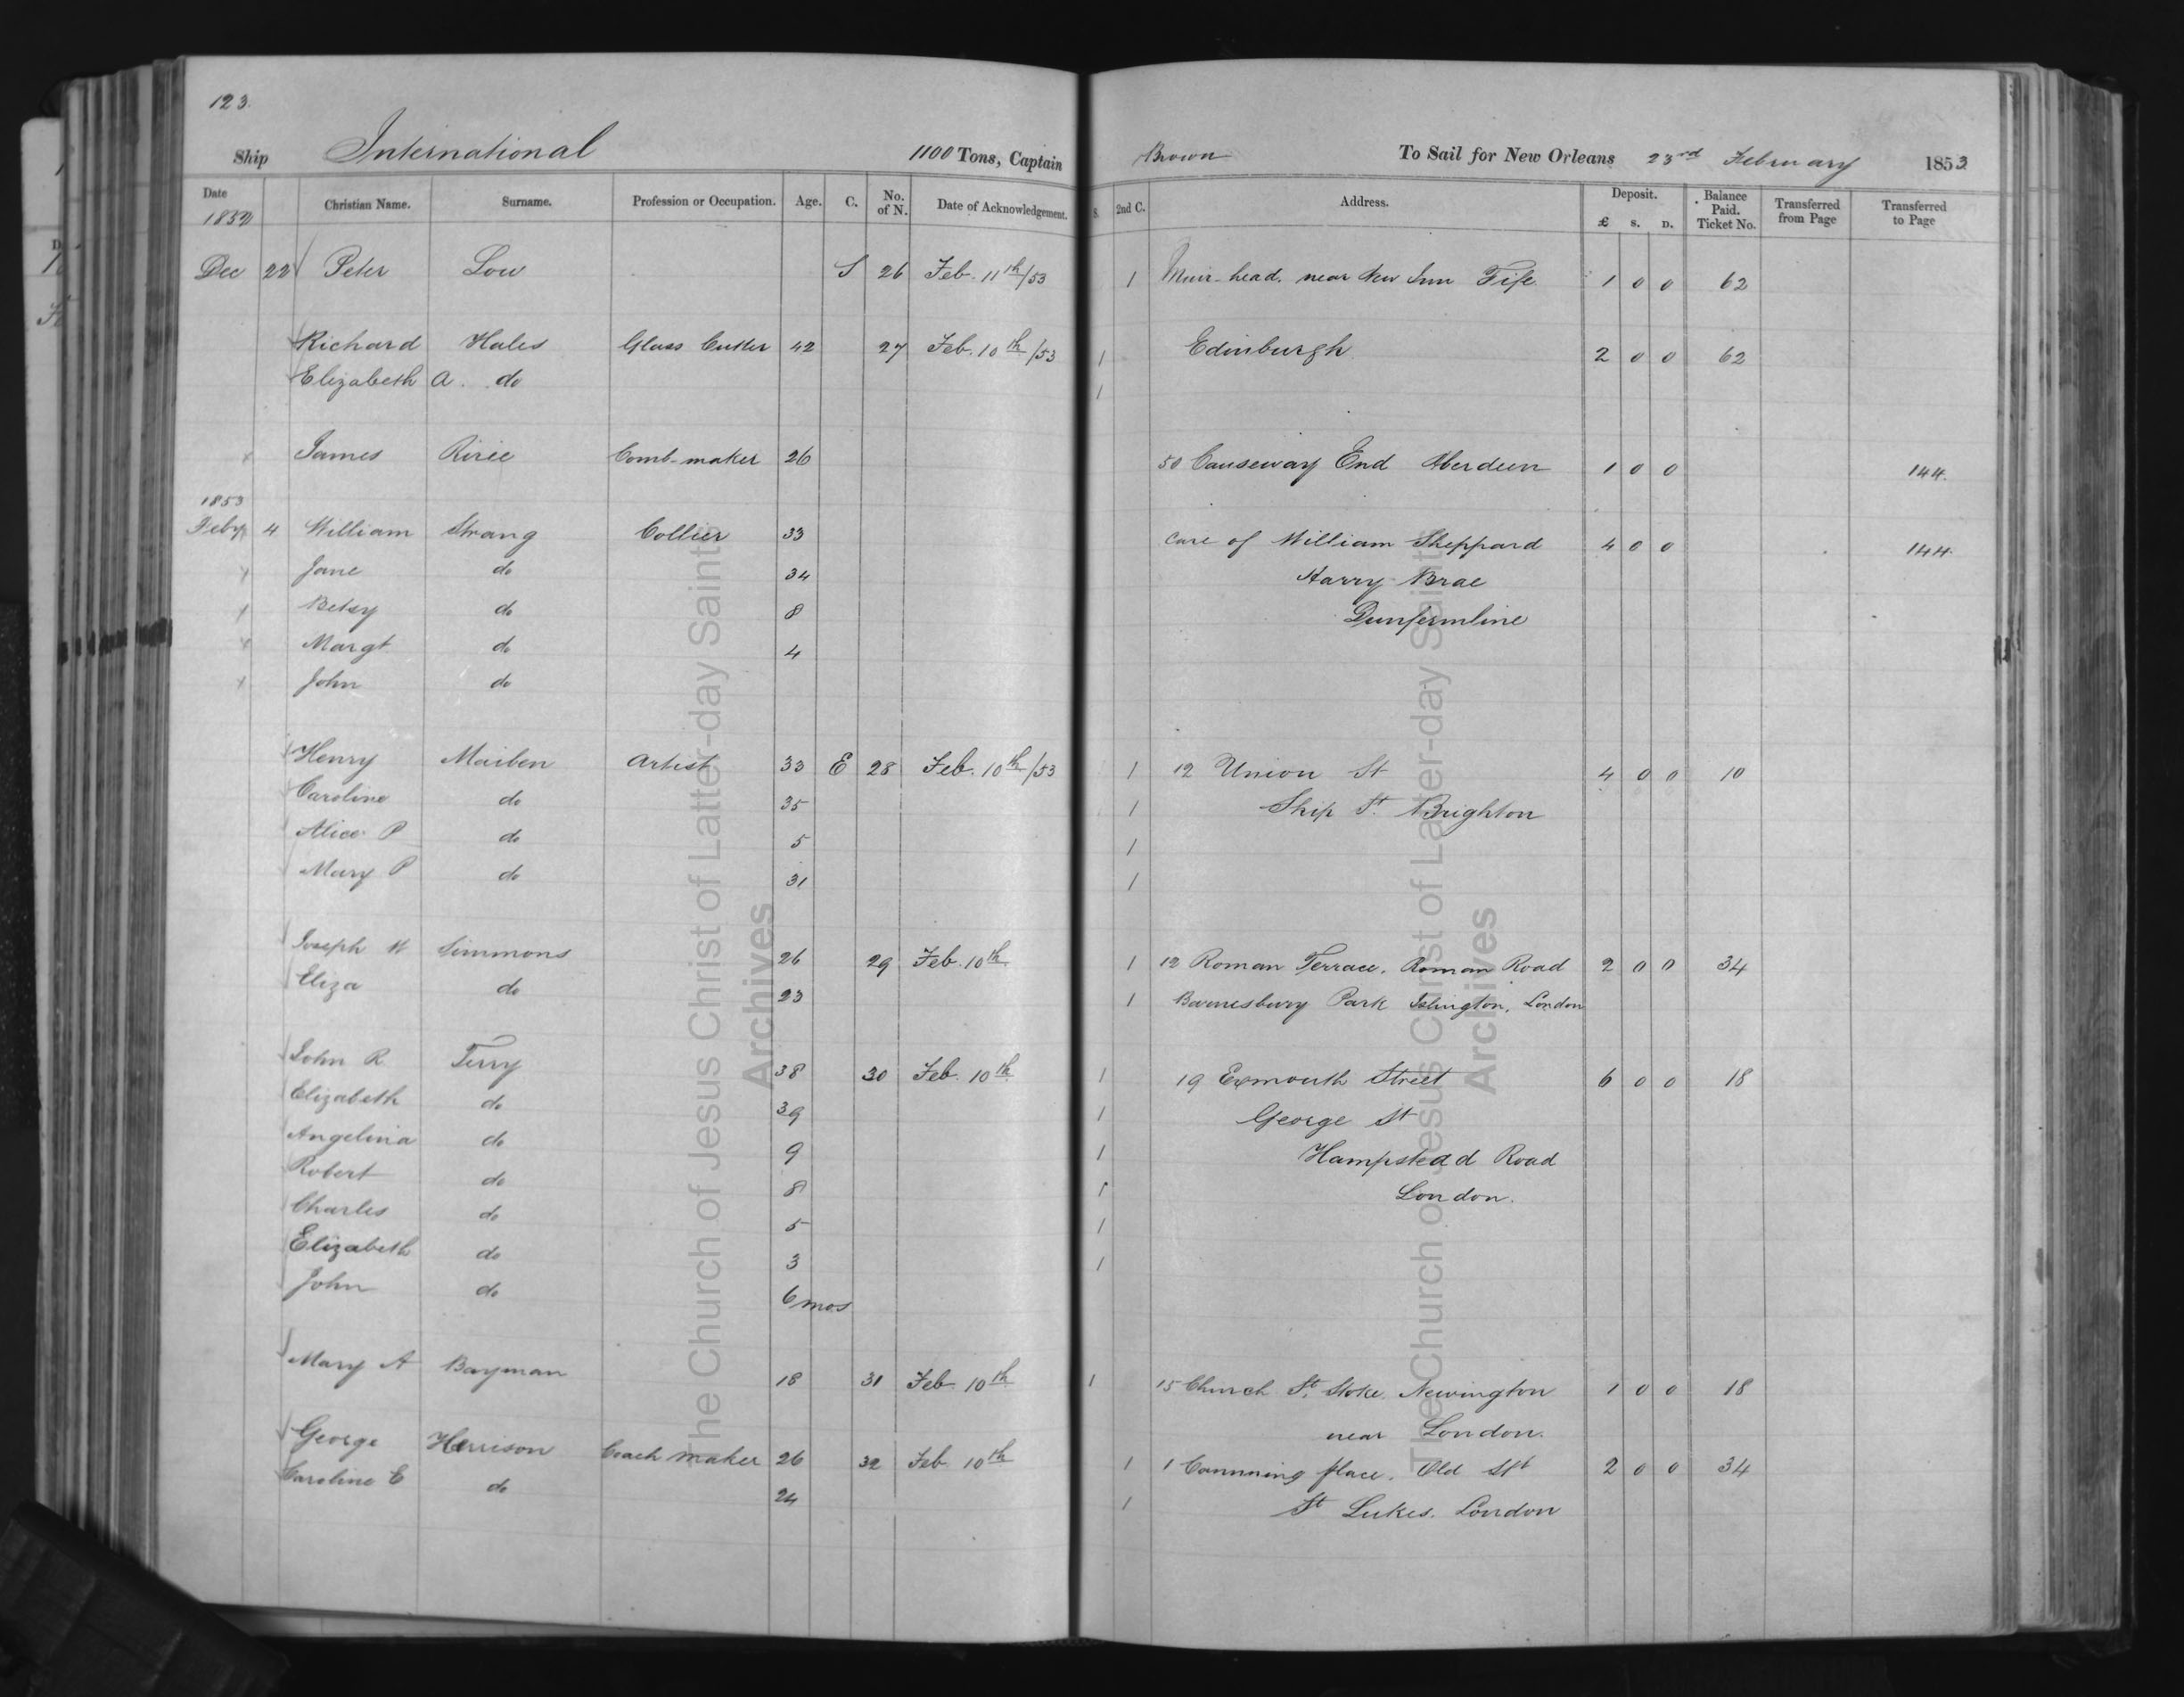 123.
Ship International 1100 Tons, Captain Brown To Sail for New Orleans 23rd February 1853
Date 1852 Christian Name. Surname. Profession or Occupation. Age. C. No. of N. Date of Acknowledgement. S. 2nd C. Address. Deposit. £ S. D. Balance Paid. Ticket No. Transferred from Page Transferred to Page
Dec 22 Peter Low S 26 Feb. 11th/53 1 Muir-head. near New Inn Fife 1 0 0 62
Richard Hales Glass Cutter 42 27 Feb. 10th/53 1 Edinburgh 2 0 0 62
Elizabeth A. do 1
James Ririe Comb-maker 26 50 Causeway End Aberdeen 1 0 0 144.
1853
Feby 4 William Strang Collier 33 Care of William Sheppard 4 0 0 144.
Jane do 34 Harry Brae
Betsy do 8 Dunfermline
Margt do 4
John do
Henry Maiben Artist 33 E 28 Feb. 10th/53 1 12 Union St 4 0 0 10
Caroline do 35 1 Ship St. Brighton
Alice P do 5 1
Mary P do 31 1
Joseph M Simmons 26 29 Feb. 10th 1 12 Roman Terrace. Roman Road 2 0 0 34
Eliza do 23 1 Barnesbury Park Islington, London
John R Terry 38 30 Feb. 10th 1 19 Exmouth Street 6 0 0 18
Elizabeth do 39 1 George St
Angelina do 9 1 Hampstead Road
Robert do 8 1 London.
Charles do 5 1
Elizabeth do 3 1
John do 6 mos
Mary A Bayman 18 31 Feb. 10th 1 15 Church St. Stoke. Newington 1 0 0 18
near London.
George Harrison Coach maker 26 32 Feb. 10th 1 1 Cannning place. Old St 2 0 0 34
Caroline E do 24 1 St Lukes. London
The Church of Jesus Christ of Latter-day Saints
Archives
The Church of Jesus Christ of Latter-day Saints
Archives